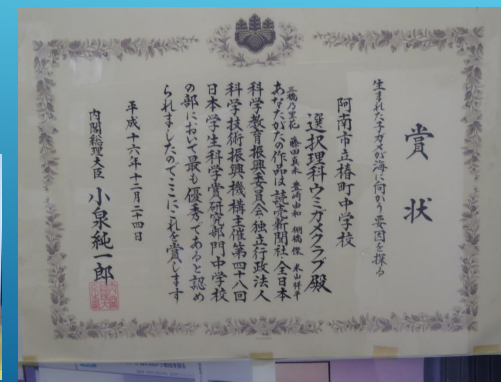 賞状
生まれた子ガメが海に向かう要因を探る
阿南市立椿町中学校
選択理科ウミガメクラブ殿
藤田真永 豊崎由和 棚橋俊 米山祥平
あなたがたの作品は読売新聞社全日本
科学教育振興委員会独立行政法人
科学技術振興機構主催第四十八回
日本学生科学賞研究部門中学校
の部において最も優秀であると認め
られましたのでここにこれを賞します
平成十六年十二月二十四日
内閣総理大臣 小泉純一郎